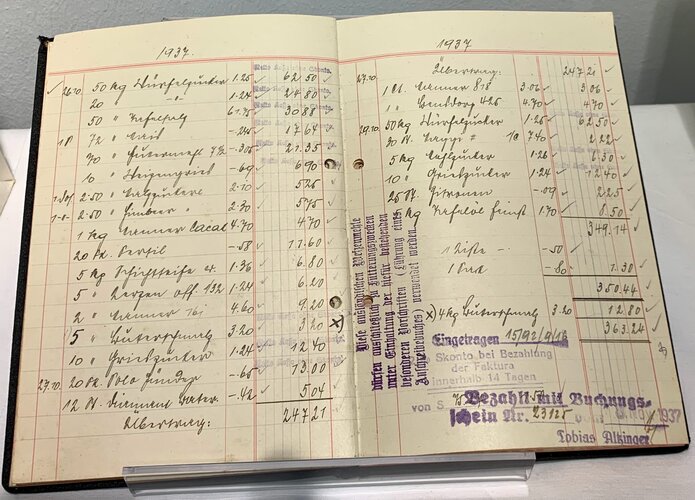 1937.
26.10. 50 kg Würfelzucker 1.25 62.50
20 " 1.24 24.80
50 " Tafelsalz 30.88
72 -.24 17.64
70 " Futtermehl 7½ -.305 21.35
10 " Weizengriet -.69 6.90
2.50 " 2.10 5.25
2.50 " Himbeer " 2.30 5.75
1 kg Manner Cacao 4.70 4.70
20 Pk. Persil -.58 11.60
5 kg Schichtseife 1.36 6.80
5 " Kerzen off. 132 1.24 6.20
2 " Manner 4.60 9.20
5 " Butterschmalz 3.20 3.20 x)
10 " Grietzucker 1.24 12.40
27.10. 20 Pk. Solo Zünder -.65 13.00
12 Pk. Diamant -.42 5.04
Übertrag: 247.21
1937
27.10. Übertrag: 247.21
1 Manner 818 3.06 3.06
1 " Bensdorp 426 4.70 4.70
29.10. 50 kg Würfelzucker 1.25 62.50
30 7.40 2.22
5 kg 1.26 6.30
10 " Grietzucker 1.24 12.40
25 St. Zitronen -.09 2.25
5 kg Tafelöl feinst 1.70 8.50
349.14
1 Kiste -.50
1 Sack -.80 1.30
350.44
x) 4 kg Butterschmalz 3.20 12.80
363.24
Diese ausländischen Weizenmehle
dürfen ausschließlich zu Futterungszwecken
unter Einhaltung der hiefür bestehenden
besonderen Vorschriften (Führung eines
Anschreibebuches) verwendet werden.
Eingetragen
Skonto bei Bezahlung
der Faktura
innerhalb 14 Tagen
von S
Bezahlt mit Buchungs-
schein Nr. 23125 vom 1937
Tobias Altzinger